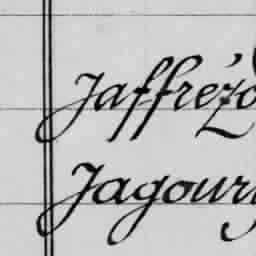 Jaffrézo
Jagoury